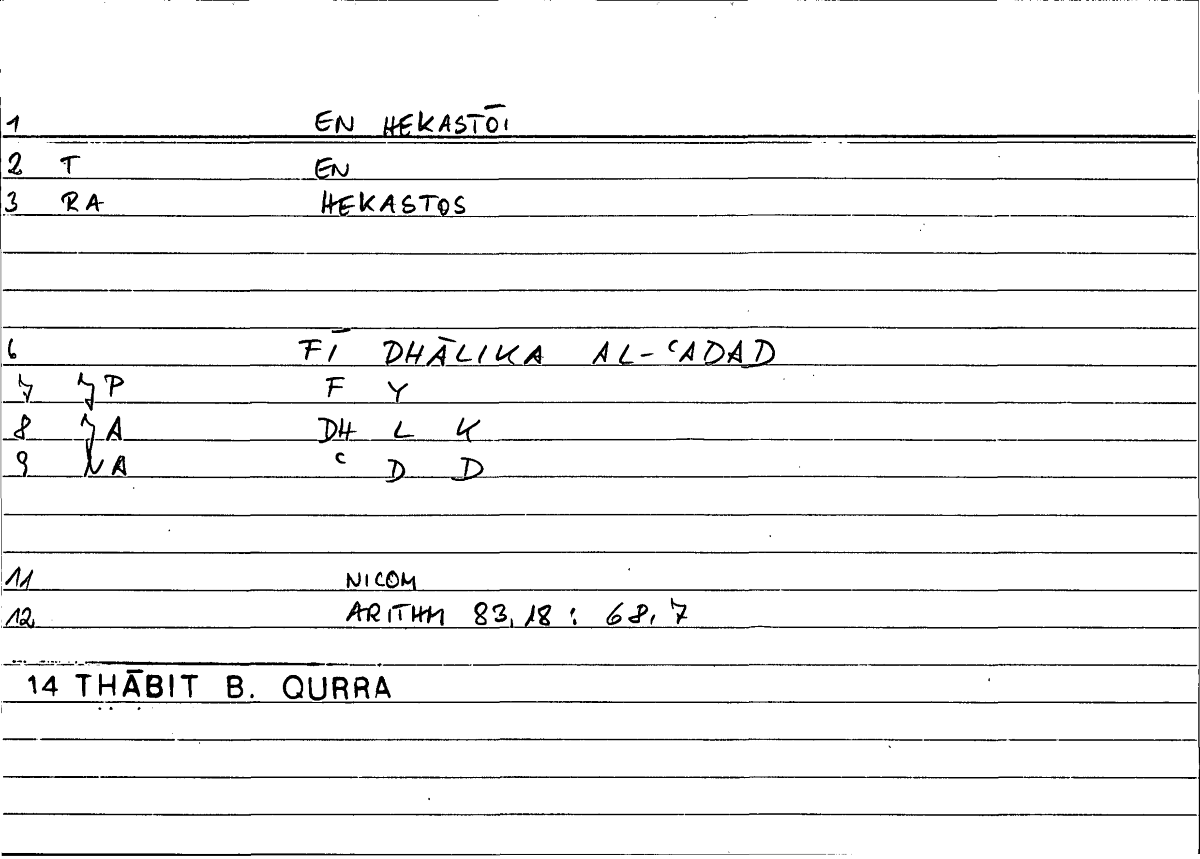 1 EN HEKASTŌI
2 T EN
3 RA HEKASTOS
6 FĪ DHĀLIKA AL-ʿADAD
7 JP F Y
8 JA DH L K
9 NA ʿ D D
11 NICOM
12 ARITHM 83,18 : 68,7
14 THĀBIT B. QURRA